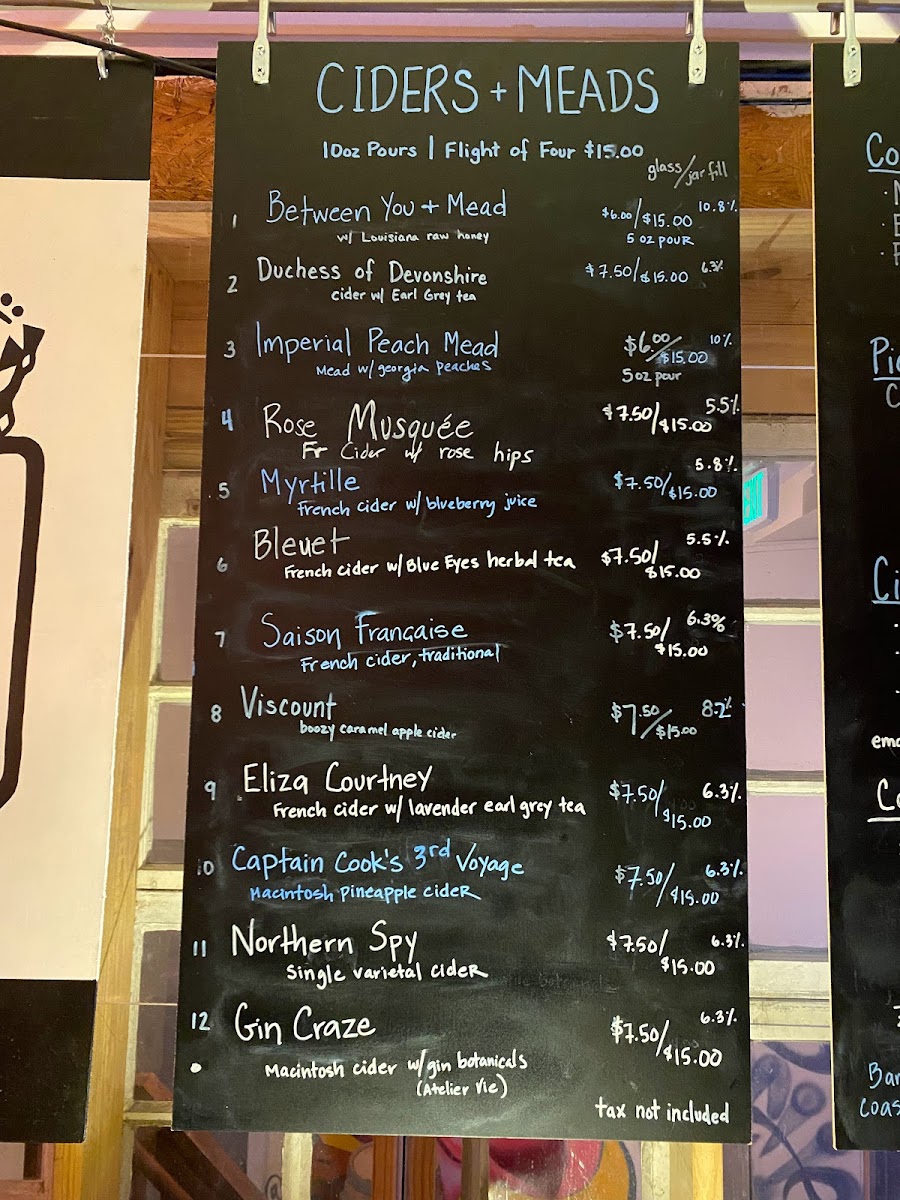 CIDERS + MEADS
10oz Pours | Flight of Four $15.00
glass/jar fill
1 Between You + Mead $6.00/$15.00 10.8%
w/ Louisiana raw honey 5 oz POUR
2 Duchess of Devonshire $7.50/$15.00 6.3%
cider w/ Earl Grey tea
3 Imperial Peach Mead $6.00/$15.00 10%
Mead w/ georgia peaches 5oz pour
4 Rose Musquée $7.50/$15.00 5.5%
Fr Cider w/ rose hips
5 Myrtille $7.50/$15.00 5.8%
French cider w/ blueberry juice
6 Bleuet $7.50/$15.00 5.5%
French cider w/ Blue Eyes herbal tea
7 Saison Française $7.50/$15.00 6.3%
French cider, traditional
8 Viscount $7.50/$15.00 8.2%
boozy caramel apple cider
9 Eliza Courtney $7.50/$15.00 6.3%
French cider w/ lavender earl grey tea
10 Captain Cook's 3rd Voyage $7.50/$15.00 6.3%
Macintosh Pineapple cideR
11 Northern Spy $7.50/$15.00 6.3%
Single varietal cideR
12 Gin Craze $7.50/$15.00 6.3%
Macintosh cider w/ gin botanicals
(Atelier Vie)
tax not included
EXIT
Co
Pi
C
Ci
ema
Co
Bar
coas